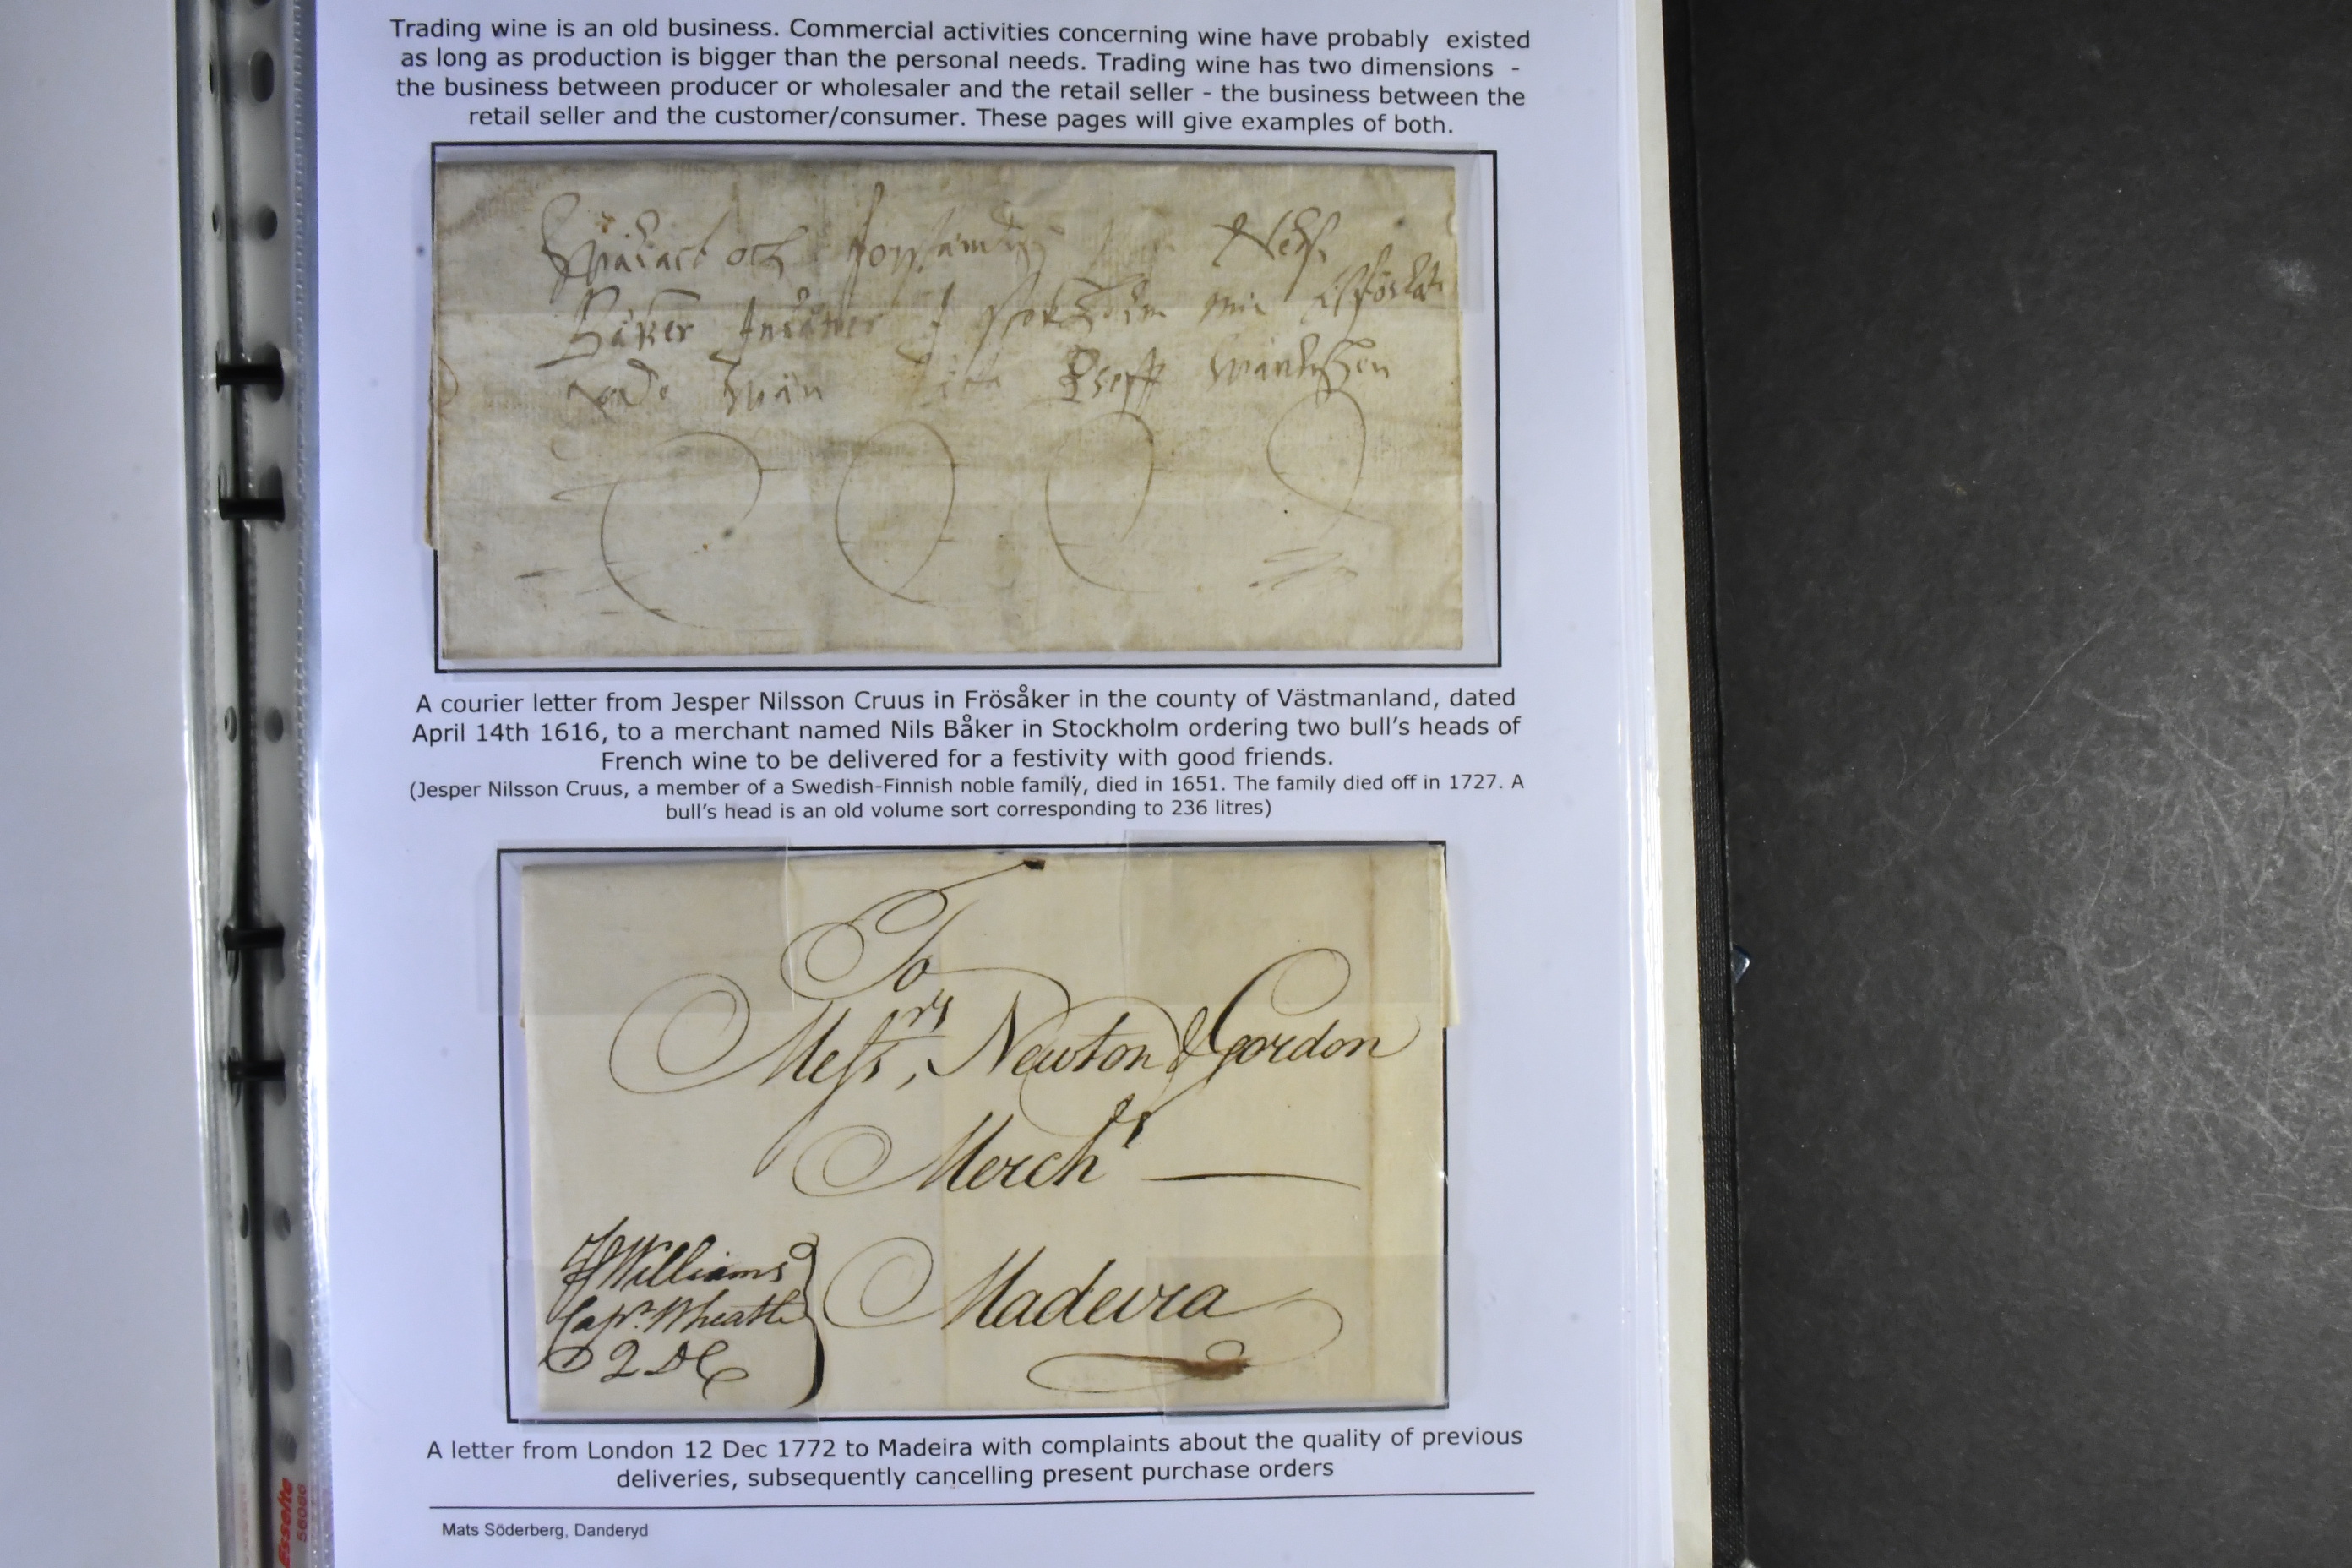 Trading wine is an old business. Commercial activities concerning wine have probably existed
as long as production is bigger than the personal needs. Trading wine has two dimensions -
the business between producer or wholesaler and the retail seller - the business between the
retail seller and the customer/consumer. These pages will give examples of both.
och
Båker
A courier letter from Jesper Nilsson Cruus in Frösåker in the county of Västmanland, dated
April 14th 1616, to a merchant named Nils Båker in Stockholm ordering two bull's heads of
French wine to be delivered for a festivity with good friends.
(Jesper Nilsson Cruus, a member of a Swedish-Finnish noble family, died in 1651. The family died off in 1727. A
bull's head is an old volume sort corresponding to 236 litres)
To
Messrs, Newton & Gordon
Merchts
Madeira
Williams
Capn. Wheatle
2 DC
A letter from London 12 Dec 1772 to Madeira with complaints about the quality of previous
deliveries, subsequently cancelling present purchase orders
Mats Söderberg, Danderyd
Esselte
56066